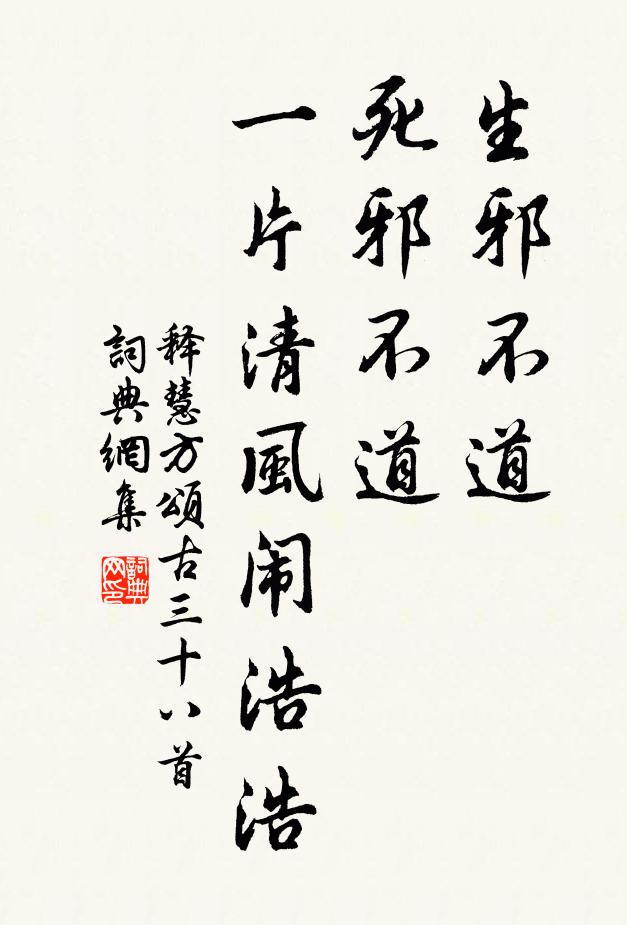 生邪不道
死邪不道
一片清風闹浩浩
释慧方頌古三十八首
詞典網集
詞典网印